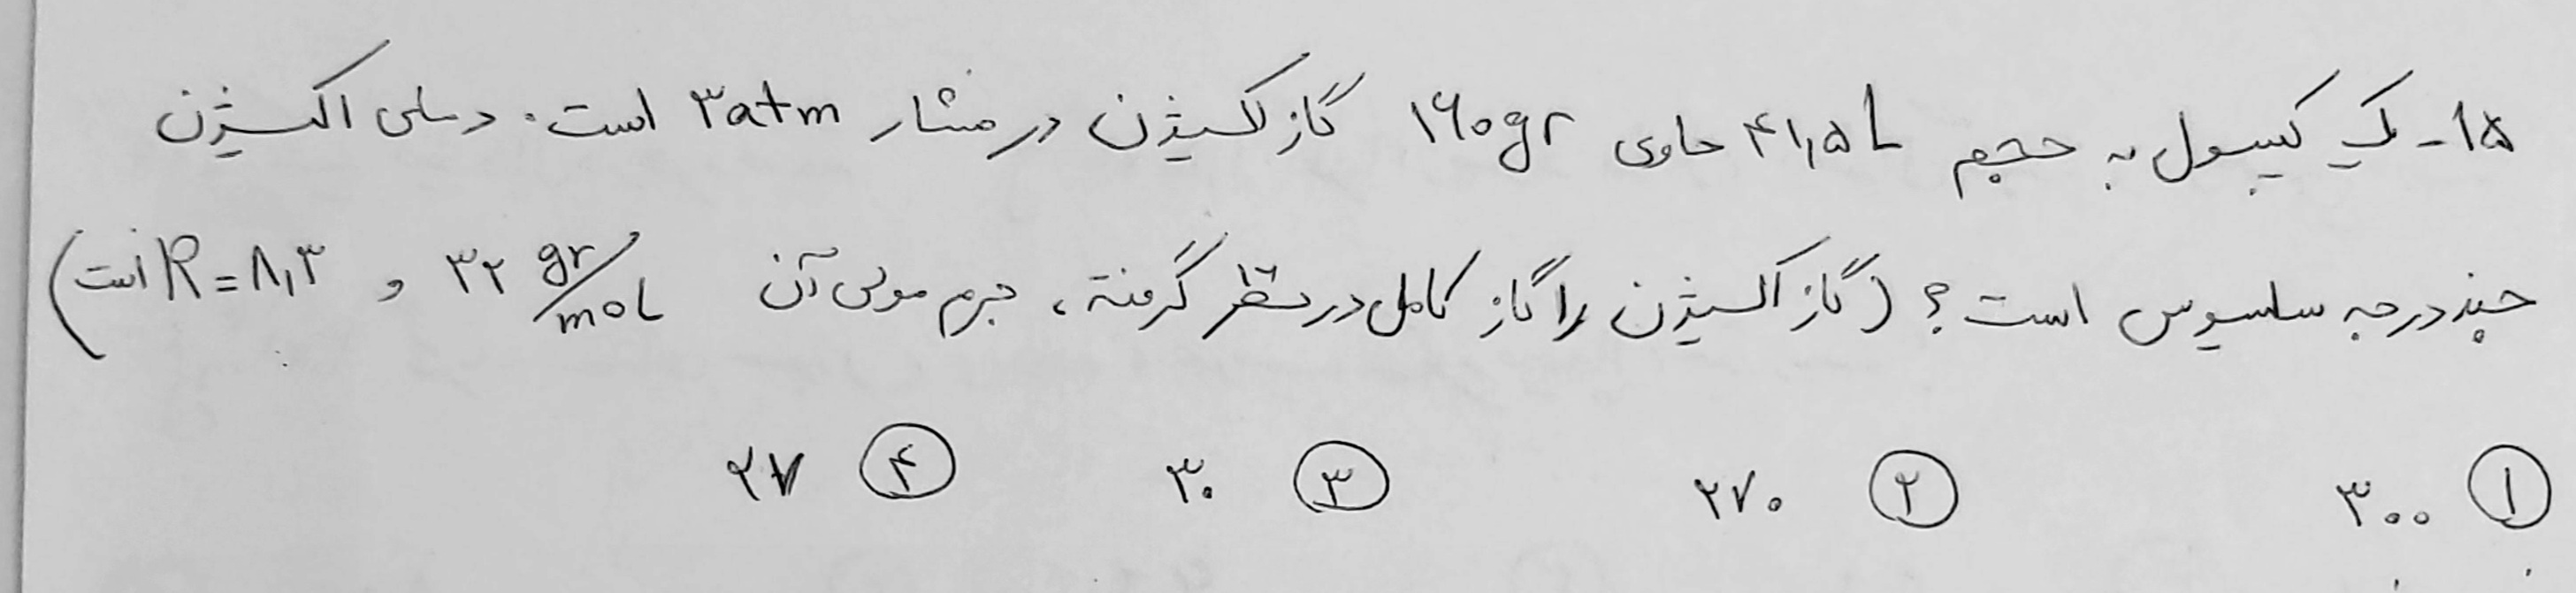 ۱۵- یک کپسول به حجم ۴۱,۵L حاوی ۱۶۰gr گاز اکسیژن در فشار ۳atm است. دمای اکسیژن
چند درجه سلسیوس است؟ (گاز اکسیژن را گاز کامل در نظر گرفته، جرم مولی آن ۳۲ gr/mol و R=۸,۳ است)
① ۳۰۰ ② ۲۷۰ ③ ۳۰ ④ ۲۷